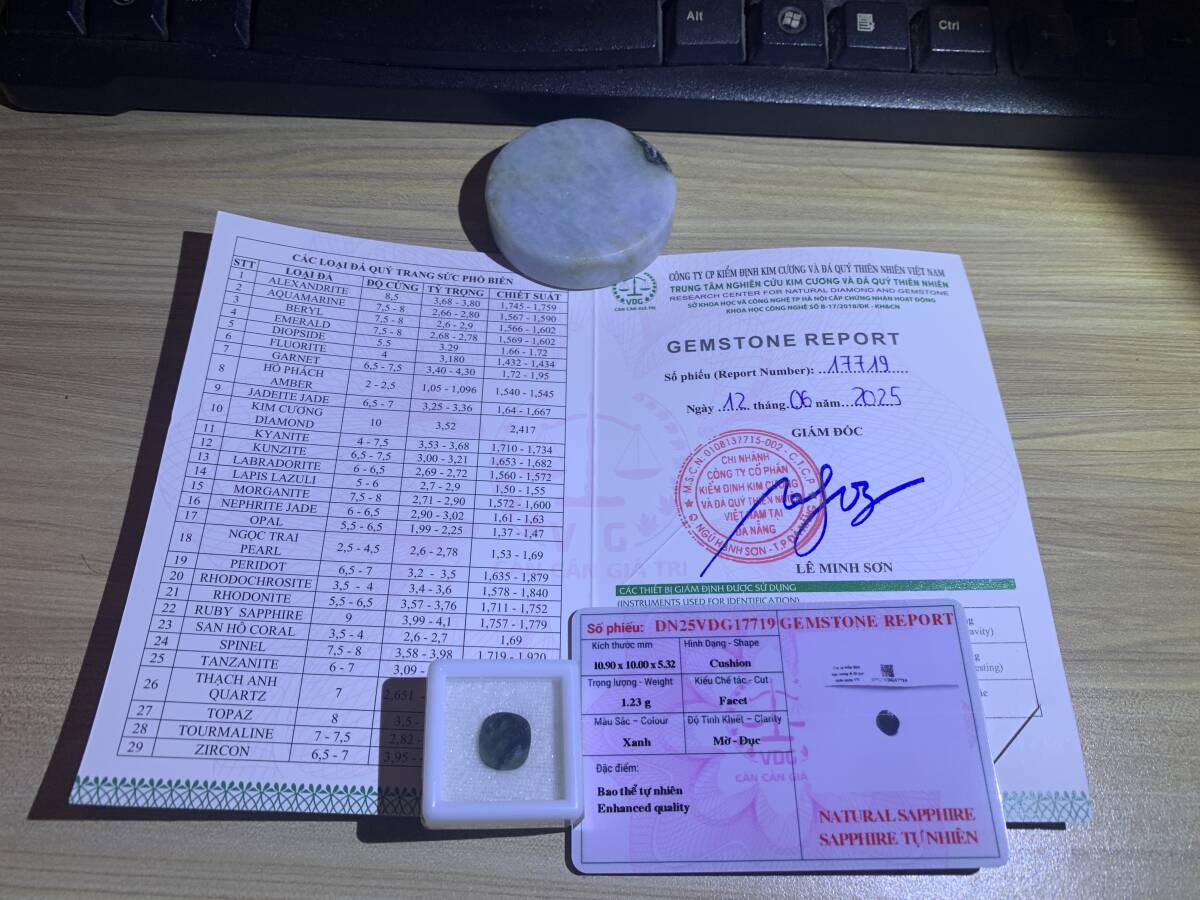 Alt
Ctrl
CÁC LOẠI ĐÁ QUÝ TRANG SỨC PHỔ BIẾN
STT LOẠI ĐÁ ĐỘ CỨNG TỶ TRỌNG CHIẾT SUẤT
1 ALEXANDRITE 8,5 3,68 - 3,80 1,745 - 1,759
2 AQUAMARINE 7,5 - 8 2,66 - 2,80 1,567 - 1,590
3 BERYL 7,5 - 8 2,6 - 2,9 1,566 - 1,602
4 EMERALD 7,5 - 8 2,68 - 2,78 1,569 - 1,602
5 DIOPSIDE 5.5 3.29 1.66 - 1.72
6 FLUORITE 4 3,180 1,432 - 1,434
7 GARNET 6,5 - 7,5 3,40 - 4,30 1,72 - 1,95
8 HỔ PHÁCH
AMBER 2 - 2,5 1,05 - 1,096 1,540 - 1,545
9 JADEITE JADE 6,5 - 7 3,25 - 3,36 1,64 - 1,667
10 KIM CƯƠNG
DIAMOND 10 3,52 2,417
11 KYANITE 4 - 7,5 3,53 - 3,68 1,710 - 1,734
12 KUNZITE 6,5 - 7,5 3,00 - 3,21 1,653 - 1,682
13 LABRADORITE 6 - 6,5 2,69 - 2,72 1,560 - 1,572
14 LAPIS LAZULI 5 - 6 2,7 - 2,9 1,50 - 1,55
15 MORGANITE 7,5 - 8 2,71 - 2,90 1,572 - 1,600
16 NEPHRITE JADE 6 - 6,5 2,90 - 3,02 1,61 - 1,63
17 OPAL 5,5 - 6,5 1,99 - 2,25 1,37 - 1,47
18 NGỌC TRAI
PEARL 2,5 - 4,5 2,6 - 2,78 1,53 - 1,69
19 PERIDOT 6,5 - 7 3,2 - 3,5 1,635 - 1,879
20 RHODOCHROSITE 3,5 - 4 3,4 - 3,6 1,578 - 1,840
21 RHODONITE 5,5 - 6,5 3,57 - 3,76 1,711 - 1,752
22 RUBY SAPPHIRE 9 3,99 - 4,1 1,757 - 1,779
23 SAN HÔ CORAL 3,5 - 4 2,6 - 2,7 1,69
24 SPINEL 7,5 - 8 3,58 - 3,98 1,719 - 1,920
25 TANZANITE 6 - 7 3,09 -
26 THẠCH ANH
QUARTZ 7 2,651 -
27 TOPAZ 8 3,5 -
28 TOURMALINE 7 - 7,5 2,82 -
29 ZIRCON 6,5 - 7 3,95 -
VDG
CÁN CÂN GIÁ TRỊ
VDG
CÁN CÂN GIÁ TRỊ
CÔNG TY CP KIỂM ĐỊNH KIM CƯƠNG VÀ ĐÁ QUÝ THIÊN NHIÊN VIỆT NAM
TRUNG TÂM NGHIÊN CỨU KIM CƯƠNG VÀ ĐÁ QUÝ THIÊN NHIÊN
RESEARCH CENTER FOR NATURAL DIAMOND AND GEMSTONE
SỞ KHOA HỌC VÀ CÔNG NGHỆ TP HÀ NỘI CẤP CHỨNG NHẬN HOẠT ĐỘNG
KHOA HỌC CÔNG NGHỆ SỐ B-17/2018/ĐK - KH&CN
GEMSTONE REPORT
Số phiếu (Report Number): 17719
Ngày 12 tháng 06 năm 2025
GIÁM ĐỐC
M.S.C.N: 0108137715-002 - C.T.C.P
CHI NHÁNH
CÔNG TY CỔ PHẦN
KIỂM ĐỊNH KIM CƯƠNG
VÀ ĐÁ QUÝ THIÊN NHIÊN
VIỆT NAM TẠI
ĐÀ NẴNG
Q. NGŨ HÀNH SƠN - T.P ĐÀ NẴNG
LÊ MINH SƠN
CÁC THIẾT BỊ GIÁM ĐỊNH ĐƯỢC SỬ DỤNG
(INSTRUMENTS USED FOR IDENTIFICATION)
Số phiếu: DN25VDG17719 GEMSTONE REPORT
Kích thước mm Hình Dạng - Shape
10.90 x 10.00 x 5.32 Cushion
Trọng lượng - Weight Kiểu Chế tác - Cut
1.23 g Facet
Màu Sắc - Colour Độ Tinh Khiết - Clarity
Xanh Mờ - Đục
Đặc điểm:
Bao thể tự nhiên
Enhanced quality
VDG
CÁN CÂN GIÁ
NATURAL SAPPHIRE
SAPPHIRE TỰ NHIÊN